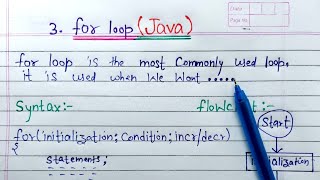 3. for loop (Java)
for loop is the most Commonly used loop.
it is used when we want ......
Syntax:-
flowchart:-
Start
for(initialization; Condition; incr/decr)
{
initialization
statements;